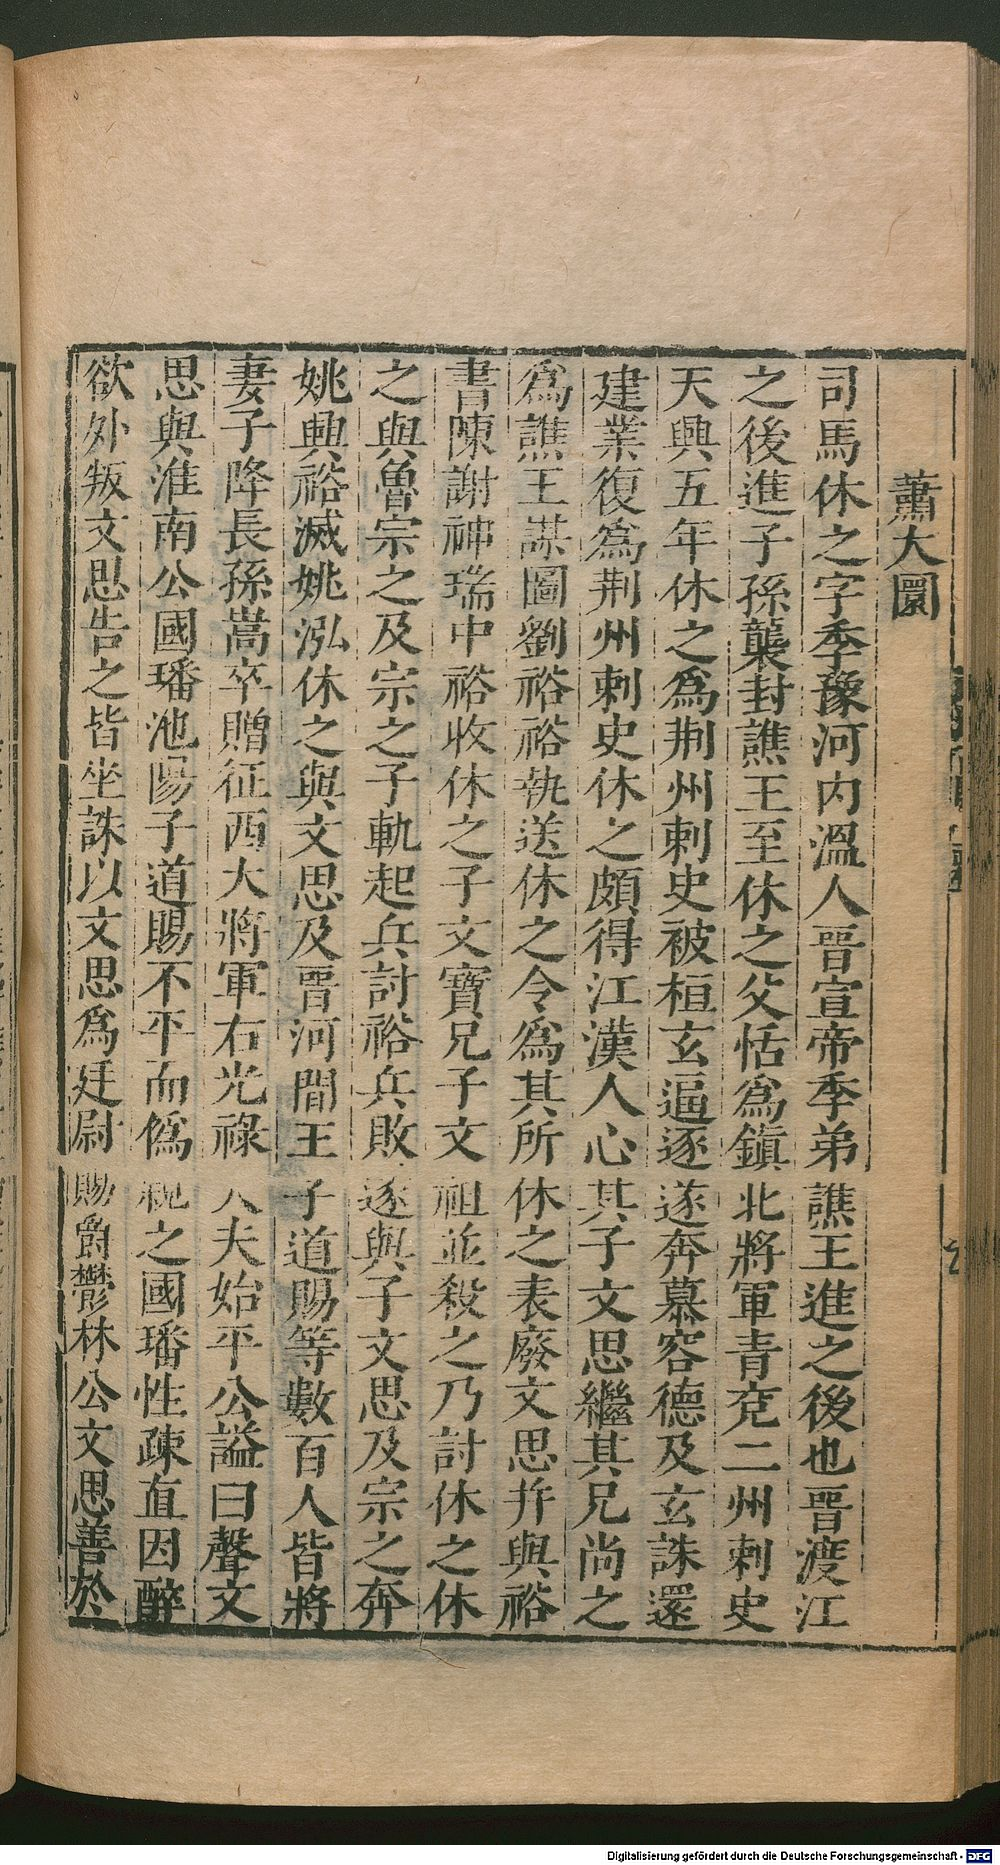 蕭大圜
司馬休之字季豫河内溫人晉宣帝季弟譙王進之後也晉渡江
之後進子孫襲封譙王至休之父恬爲鎮北將軍青兗二州刺史
天興五年休之爲荆州刺史被桓玄逼逐遂奔慕容德及玄誅還
建業復爲荆州刺史休之頗得江漢人心其子文思繼其兄尚之
爲譙王謀圖劉裕裕執送休之令爲其所休之表廢文思并與裕
書陳謝神瑞中裕收休之子文寶兄子文祖並殺之乃討休之休
之與魯宗之及宗之子軌起兵討裕兵敗遂與子文思及宗之奔
姚興裕滅姚泓休之與文思及晉河間王子道賜等數百人皆將
妻子降長孫嵩卒贈征西大將軍右光祿大夫始平公諡曰聲文
思與淮南公國璠池陽子道賜不平而僞親之國璠性疎直因醉
欲外叛文思告之皆坐誅以文思爲廷尉賜爵鬱林公文思善於
Digitalisierung gefördert durch die Deutsche Forschungsgemeinschaft - DFG